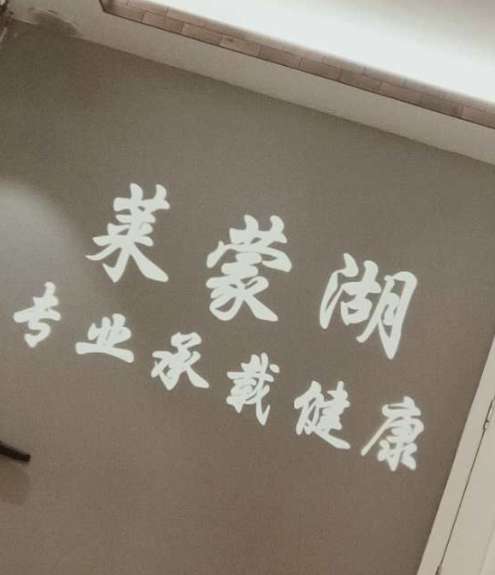 莱蒙湖
专业承载健康